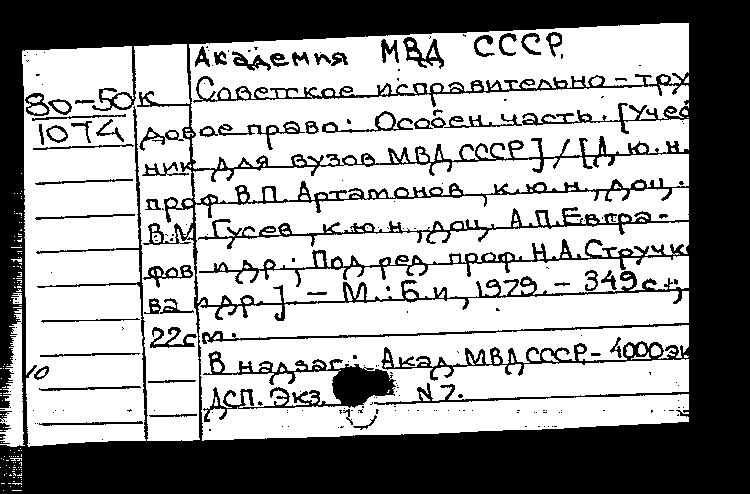 Академия МВД СССР
80-50к Советское исправительно-тру
1074 довое право: Особен. часть. [Учеб
ник для вузов МВД СССР] / [Д.ю.н.
проф. В.П. Артамонов, к.ю.н., доц.
В.М. Гусев, к.ю.н., доц. А.П. Евгра-
фов и др.; Под ред. проф. Н.А. Стручко
ва и др.]. - М.: Б.и, 1979. - 349 с.;
22 см.
В надзаг.: Акад. МВД СССР - 4000 эк
10
ДСП. Экз. N 7.